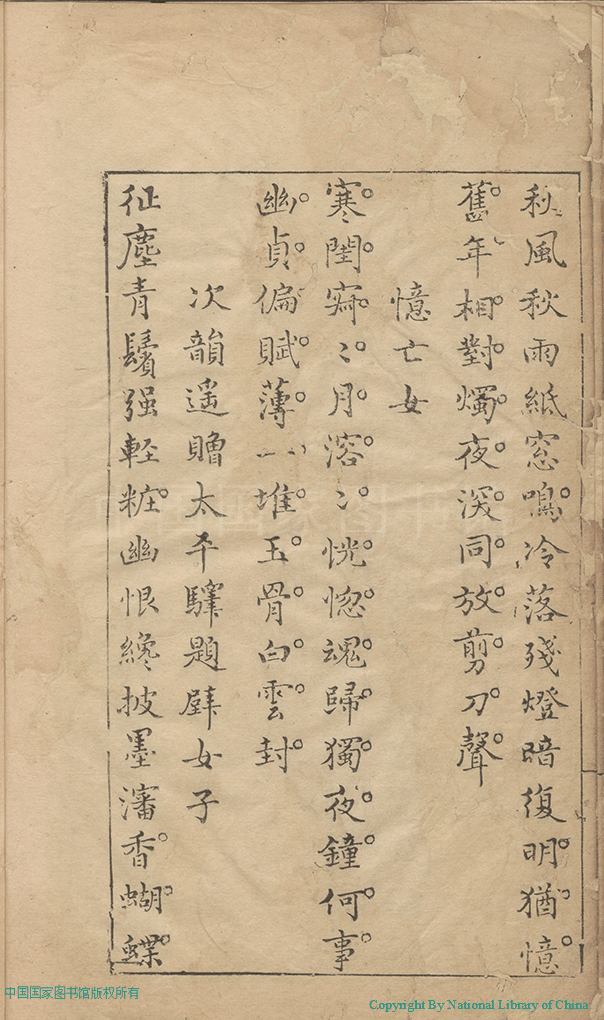 秋風秋雨紙窓鳴冷落殘燈暗復明猶憶
舊年相對燭夜深同放剪刀聲
憶亡女
寒閨寂〻月溶〻恍惚魂歸獨夜鐘何事
幽貞偏賦薄一堆玉骨白雲封
次韻遥贈太平驛題壁女子
征塵青鬢强輕粧幽恨纔披墨瀋香蝴蝶
中国国家图书馆版权所有
Copyright By National Library of China.